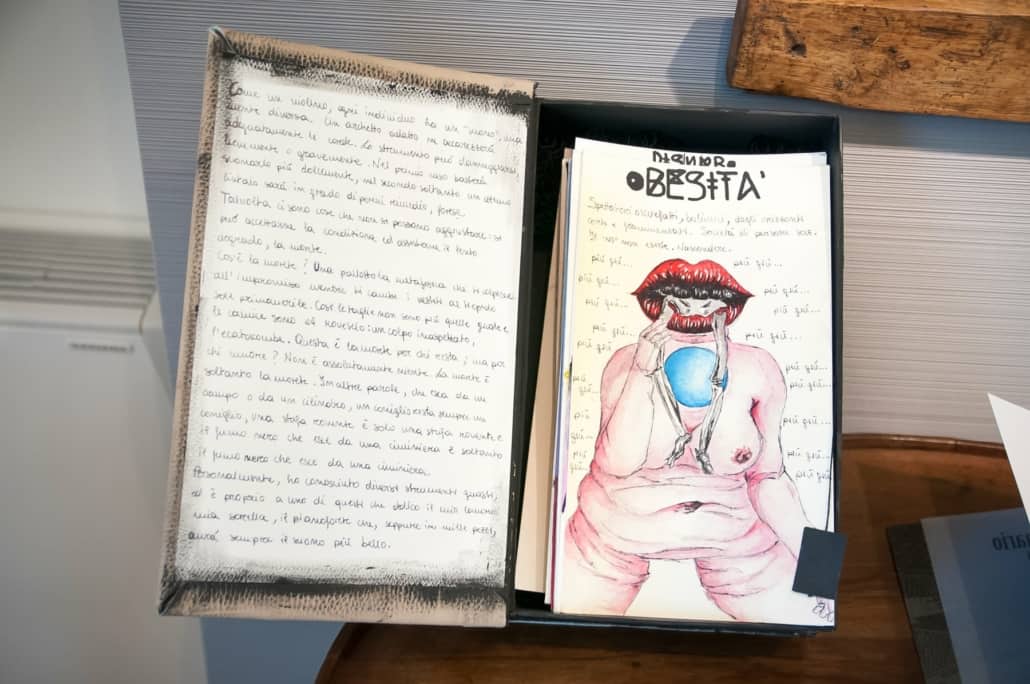 Come un violino, ogni individuo ha un "suono", una
mente diversa. Un archetto adatto ne accarezzerà
adeguatamente le corde. Lo strumento può danneggiarsi
lievemente o gravemente. Nel primo caso basterà
suonarlo più dolcemente, nel secondo soltanto un ottimo
liutaio sarà in grado di porvi rimedio, forse.
Talvolta ci sono cose che non si possono aggiustare: si
può accettarne la condizione ed
sgrado, la morte.
Cos'è la morte? Una pallottola metaforica che ti colpisce
all'improvviso mentre ti cambi i vestiti
sole primaverile. Così le taglie non sono più quelle giuste e
le camicie sono di rovescio: un colpo inaspettato,
l'ecatombe. Questa è la morte per chi resta; ma per
chi muore? Non è assolutamente niente. La morte è
soltanto la morte. In altre parole, che esca da un
campo o da un cilindro, un coniglio resta sempre un
coniglio, una stufa rovente è solo una stufa rovente e
il fumo nero che esce da una ciminiera è soltanto
il fumo nero che esce da una ciminiera.
Personalmente, ho conosciuto diversi strumenti guasti,
ed è proprio a uno di questi che dedico il mio
mia sorella, il pianoforte che, seppure in mille pezzi,
avrà sempre il suono più bello.
OBESITÀ
Spettatori assuefatti, bulimia, dagli orizzonti
corti e Società di persone sole.
Io non esiste. Nascondere.
più giù... più giù...
più giù... più giù...
più giù... più giù...
più giù... più giù...
più giù... più giù...
più giù... più giù...
più giù...
più giù... più giù...
più giù... più giù...
più giù... più giù...
nario